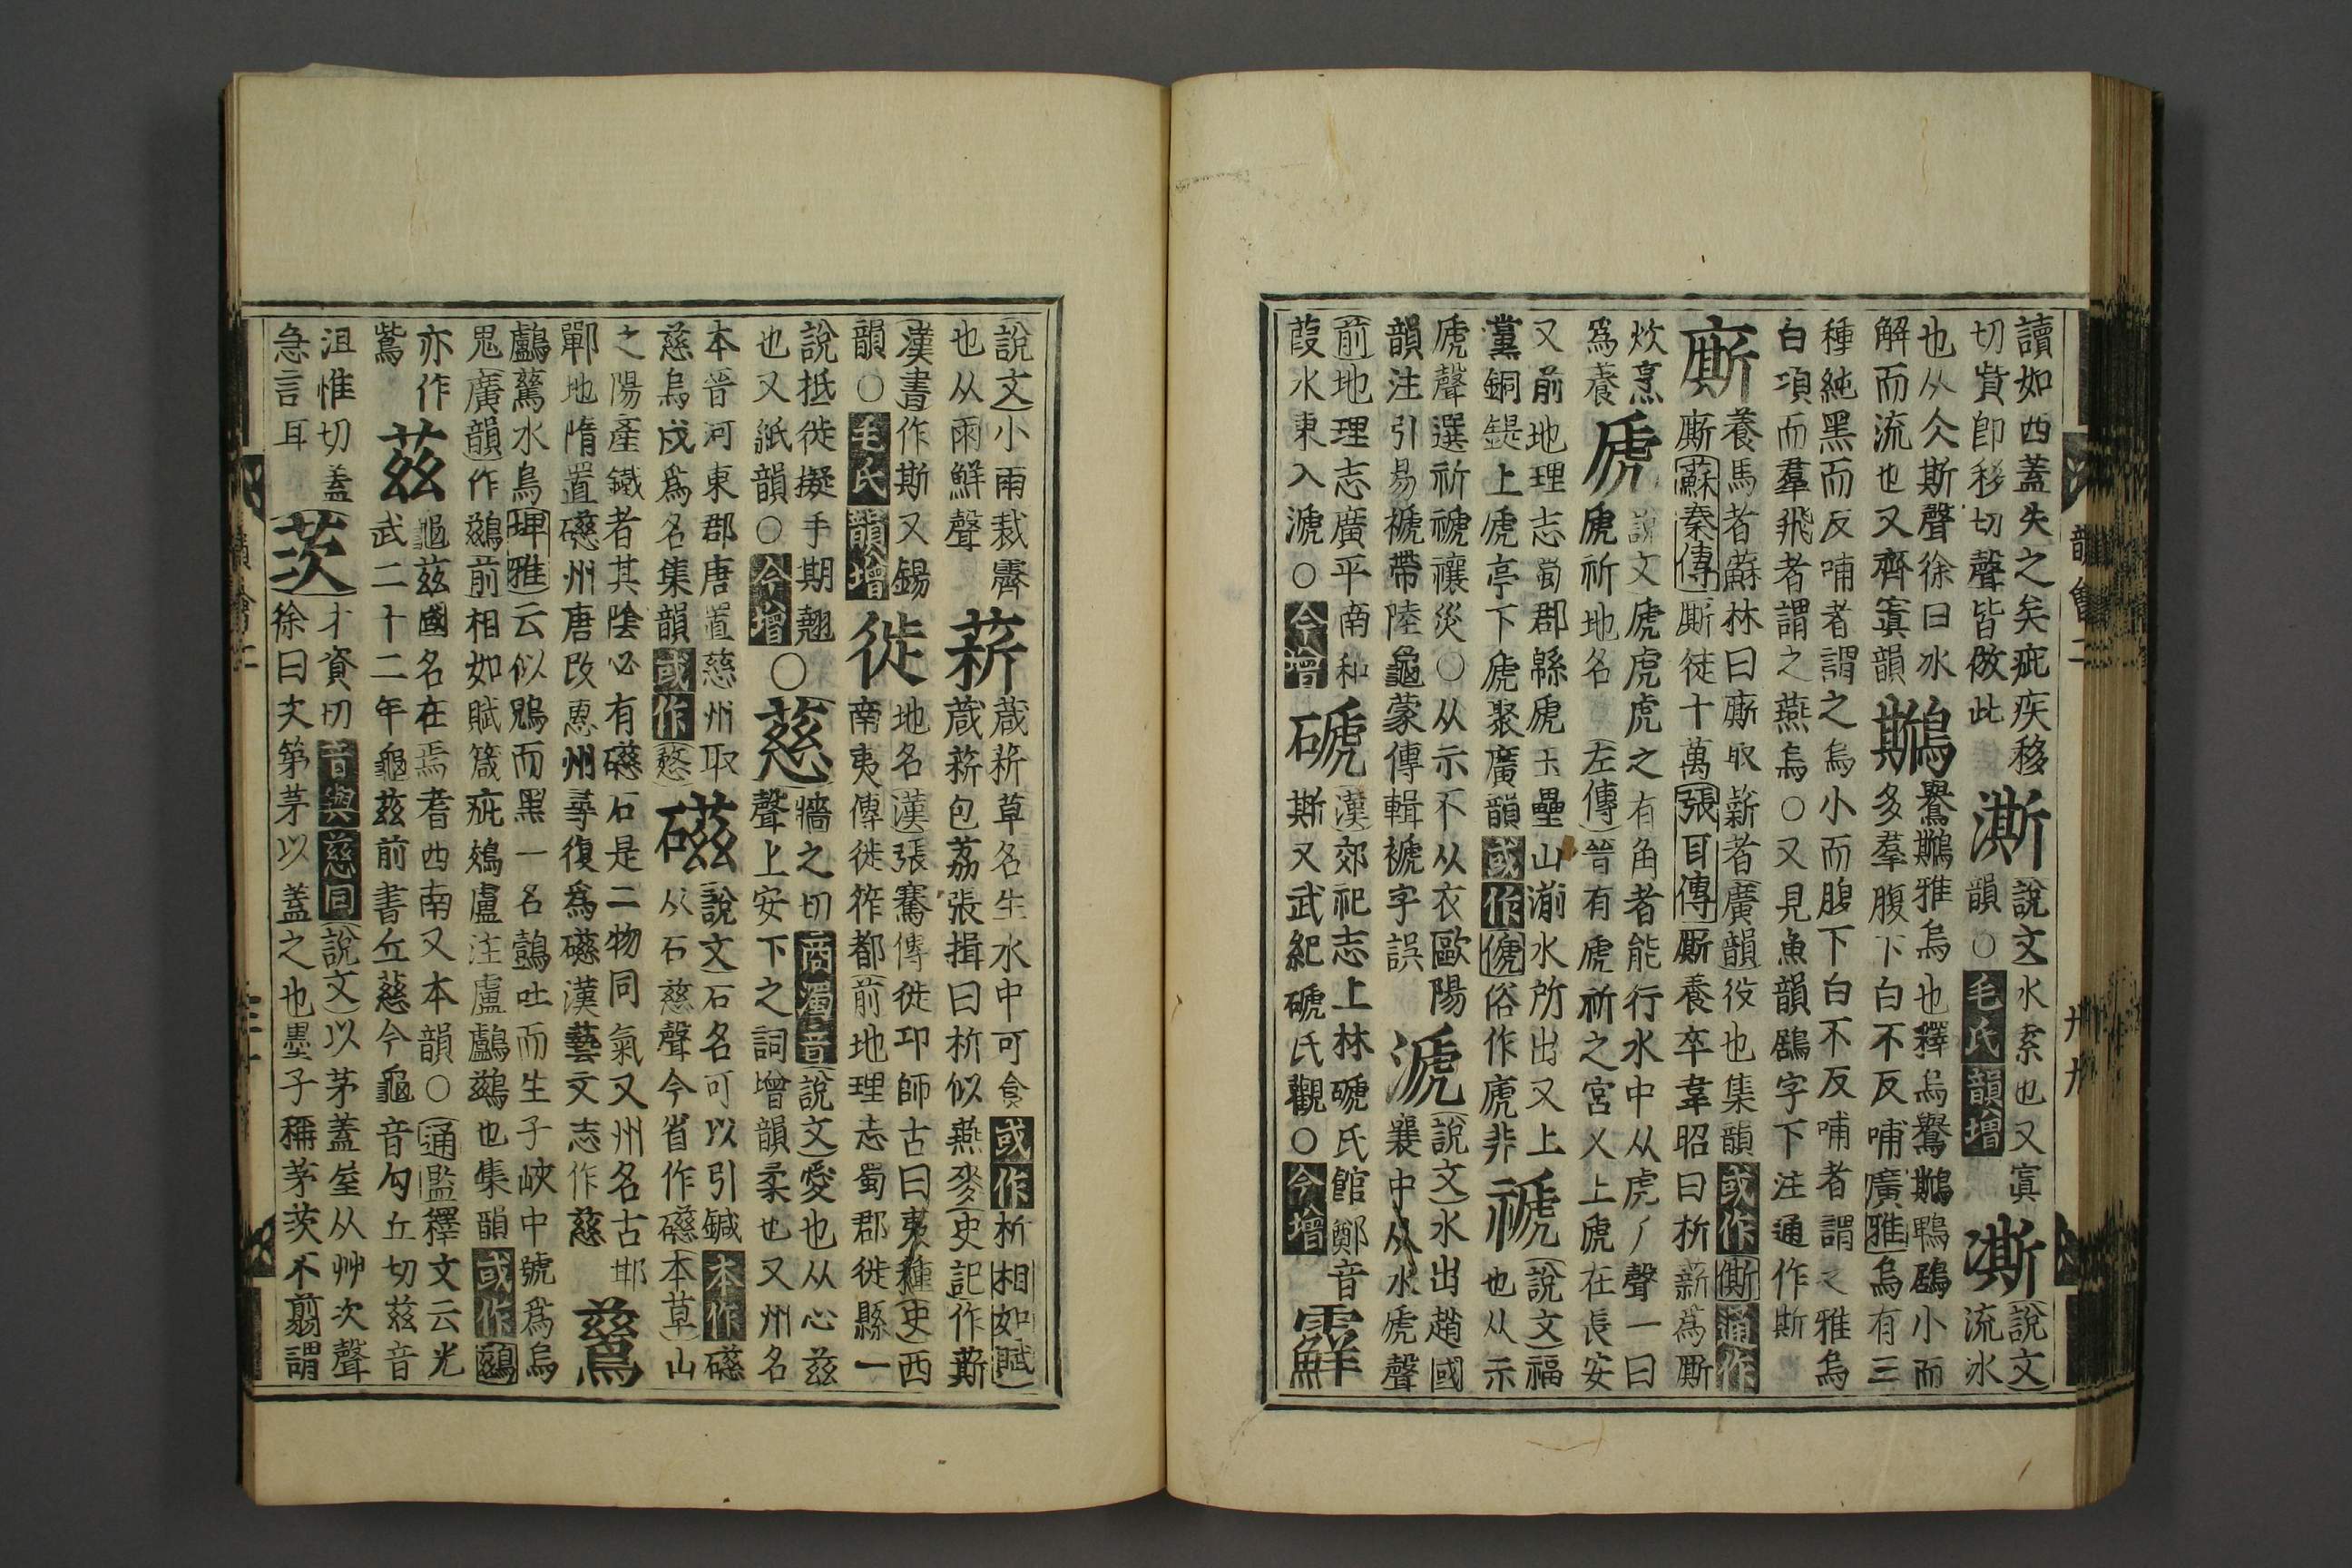 讀如西蓋失之矣疵疾移
切貲卽移切聲皆倣此
澌
說文水索也又寘
韻○毛氏韻增
凘
說文
流冰
也从仌斯聲徐曰水
解而流也又齊寘韻
鷉
鸒鷉雅烏也釋烏鸒鷉鵯鶋小而
多羣腹下白不反哺廣雅烏有三
種純黑而反哺者謂之烏小而腹下白不反哺者謂之雅烏
白項而羣飛者謂之燕烏○又見魚韻鶋字下注通作斯
廝
養馬者蘇林曰廝取薪者廣韻役也集韻或作㒋通作
廝蘇秦傳廝徒十萬張耳傳廝養卒韋昭曰析薪爲廝
炊烹
爲養
虒
說文虒虎之有角者能行水中从虎𠂆聲一曰
虒祈地名左傳晉有虒祈之宮又上虒在長安
又前地理志蜀郡緜虒玉壘山湔水所出又上
黨銅鍉上虒亭下虒聚廣韻或作俿俗作虒非
禠
說文福
也从示
虒聲選祈禠禳災○从示不从衣歐陽
韻注引易褫帶陸龜蒙傳輯褫字誤
㴲
說文水出趙國
襄中从水虒聲
前地理志廣平南和
葭水東入㴲○今增
磃
漢郊祀志上林磃氏館鄭音
斯又武紀磃氏觀○今增
霹
說文小雨裁霽
也从雨鮮聲
蔪
葴菥草名生水中可食或作析相如賦
葴薪包荔張揖曰析似燕麥史記作蔪
漢書作斯又錫
韻○毛氏韻增
徙
地名漢張騫傳徙卭師古曰夷種史西
南夷傳徙筰都前地理志蜀郡徙縣一
說抵徙擬手期翹
也又紙韻○今增
○
慈
牆之切商濁音說文愛也从心兹
聲上安下之詞增韻柔也又州名
本晉河東郡唐置慈州取
慈烏戍爲名集韻或作㤵
磁
說文石名可以引鍼本作礠
从石慈聲今省作礠本草山
之陽產鐵者其陰必有礠石是二物同氣又州名古邯
鄲地隋置礠州唐改惠州尋復爲礠漢藝文志作慈
鶿
鸕鶿水鳥埤雅云似鶂而黑一名鷧吐而生子峽中號爲烏
鬼廣韻作鷀前相如賦箴疵鵁盧注盧鸕鷀也集韻或作鷀
亦作
鴜
兹
龜兹國名在焉耆西南又本韻○通鑑釋文云光
武二十二年龜兹前書丘慈今龜音勾丘切兹音
沮惟切蓋
急言耳
茨
才資切音與慈同說文以茅蓋屋从艸次聲
徐曰次第茅以蓋之也墨子稱茅茨不翦謂